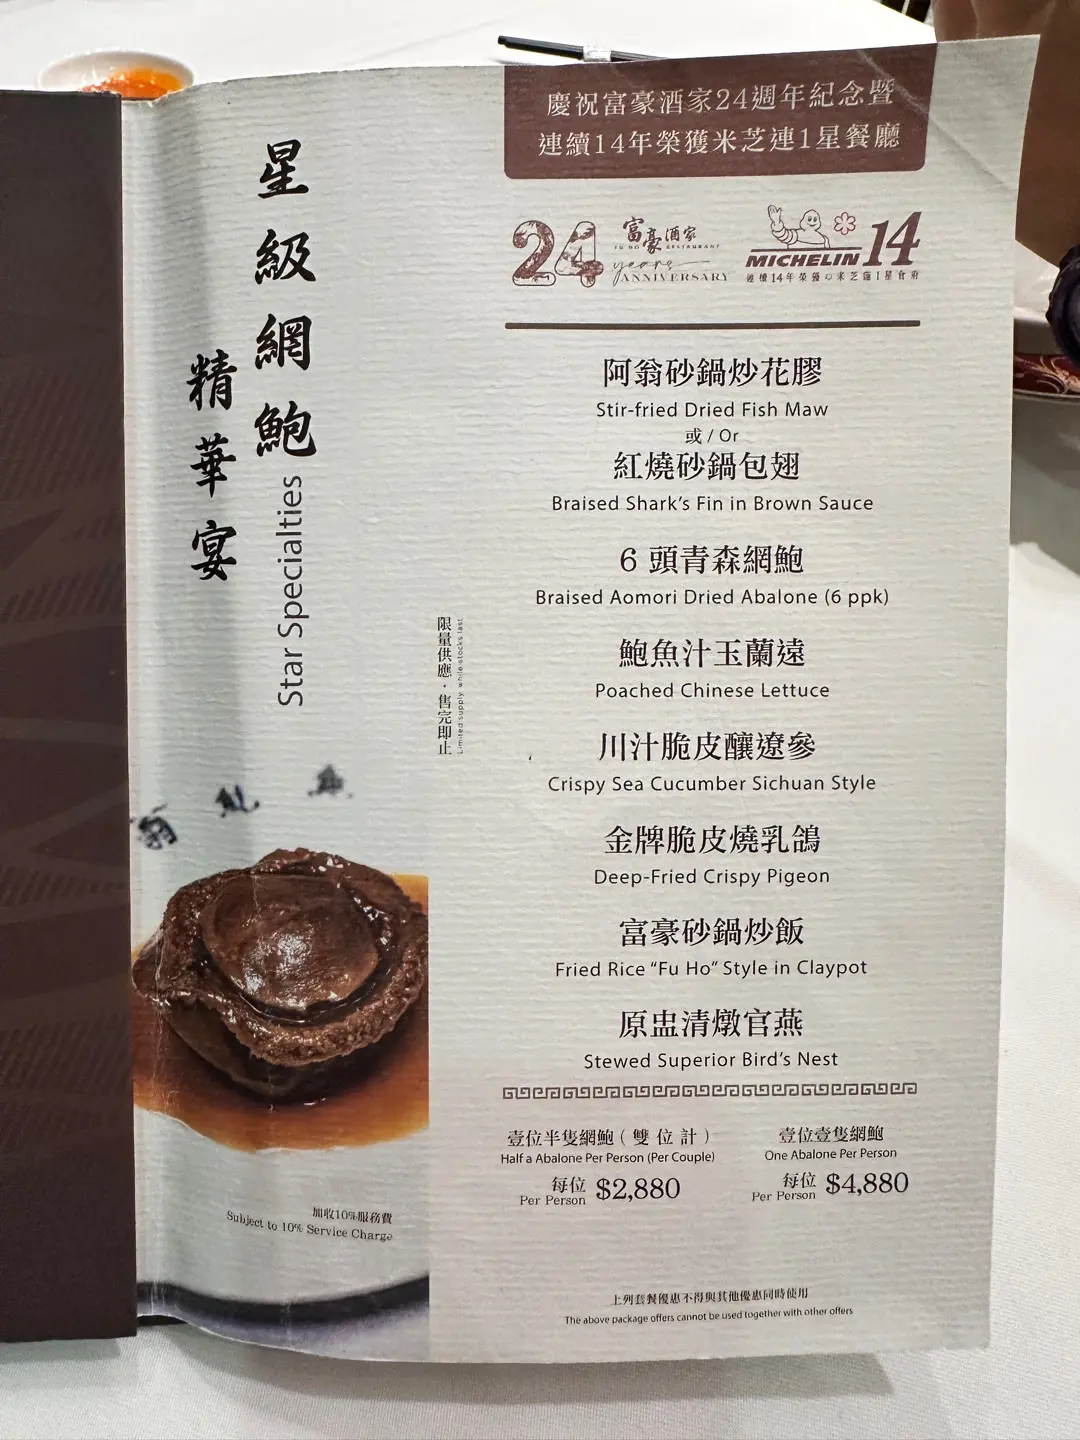 慶祝富豪酒家24週年紀念暨
連續14年榮獲米芝連1星餐廳
24
富豪酒家
FU HO RESTAURANT
years
ANNIVERSARY
MICHELIN 14
星級網鮑
精華宴
Star Specialties
阿翁砂鍋炒花膠
Stir-fried Dried Fish Maw
或 / Or
紅燒砂鍋包翅
Braised Shark's Fin in Brown Sauce
6 頭青森網鮑
Braised Aomori Dried Abalone (6 ppk)
鮑魚汁玉蘭遠
Poached Chinese Lettuce
川汁脆皮釀遼參
Crispy Sea Cucumber Sichuan Style
金牌脆皮燒乳鴿
Deep-Fried Crispy Pigeon
富豪砂鍋炒飯
Fried Rice “Fu Ho” Style in Claypot
原盅清燉官燕
Stewed Superior Bird's Nest
限量供應，售完即止
Limited supply while stocks last
壹位半隻網鮑（雙位計）
Half a Abalone Per Person (Per Couple)
每位
Per Person $2,880
壹位壹隻網鮑
One Abalone Per Person
每位
Per Person $4,880
加收10%服務費
Subject to 10% Service Charge
上列套餐優惠不得與其他優惠同時使用
The above package offers cannot be used together with other offers